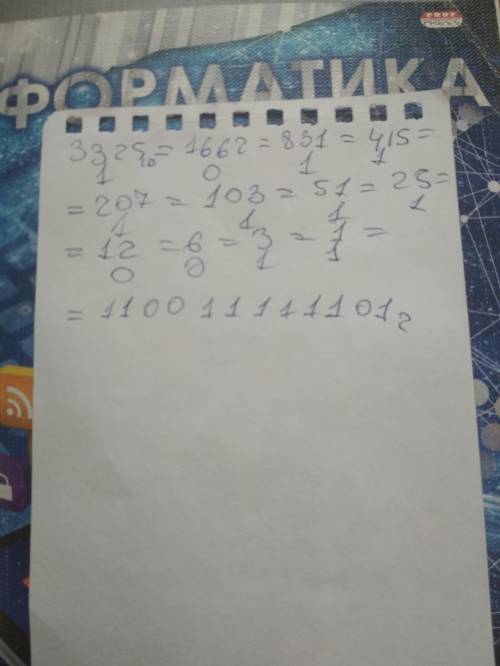 PROF
PRESS
ФОРМАТИКА
3325₁₀ = 1662 = 831 = 415 =
1 0 1 1
= 207 = 103 = 51 = 25 =
1 1 1 1
= 12 = 6 = 3 = 1 =
0 0 1 1
= 110011111101₂